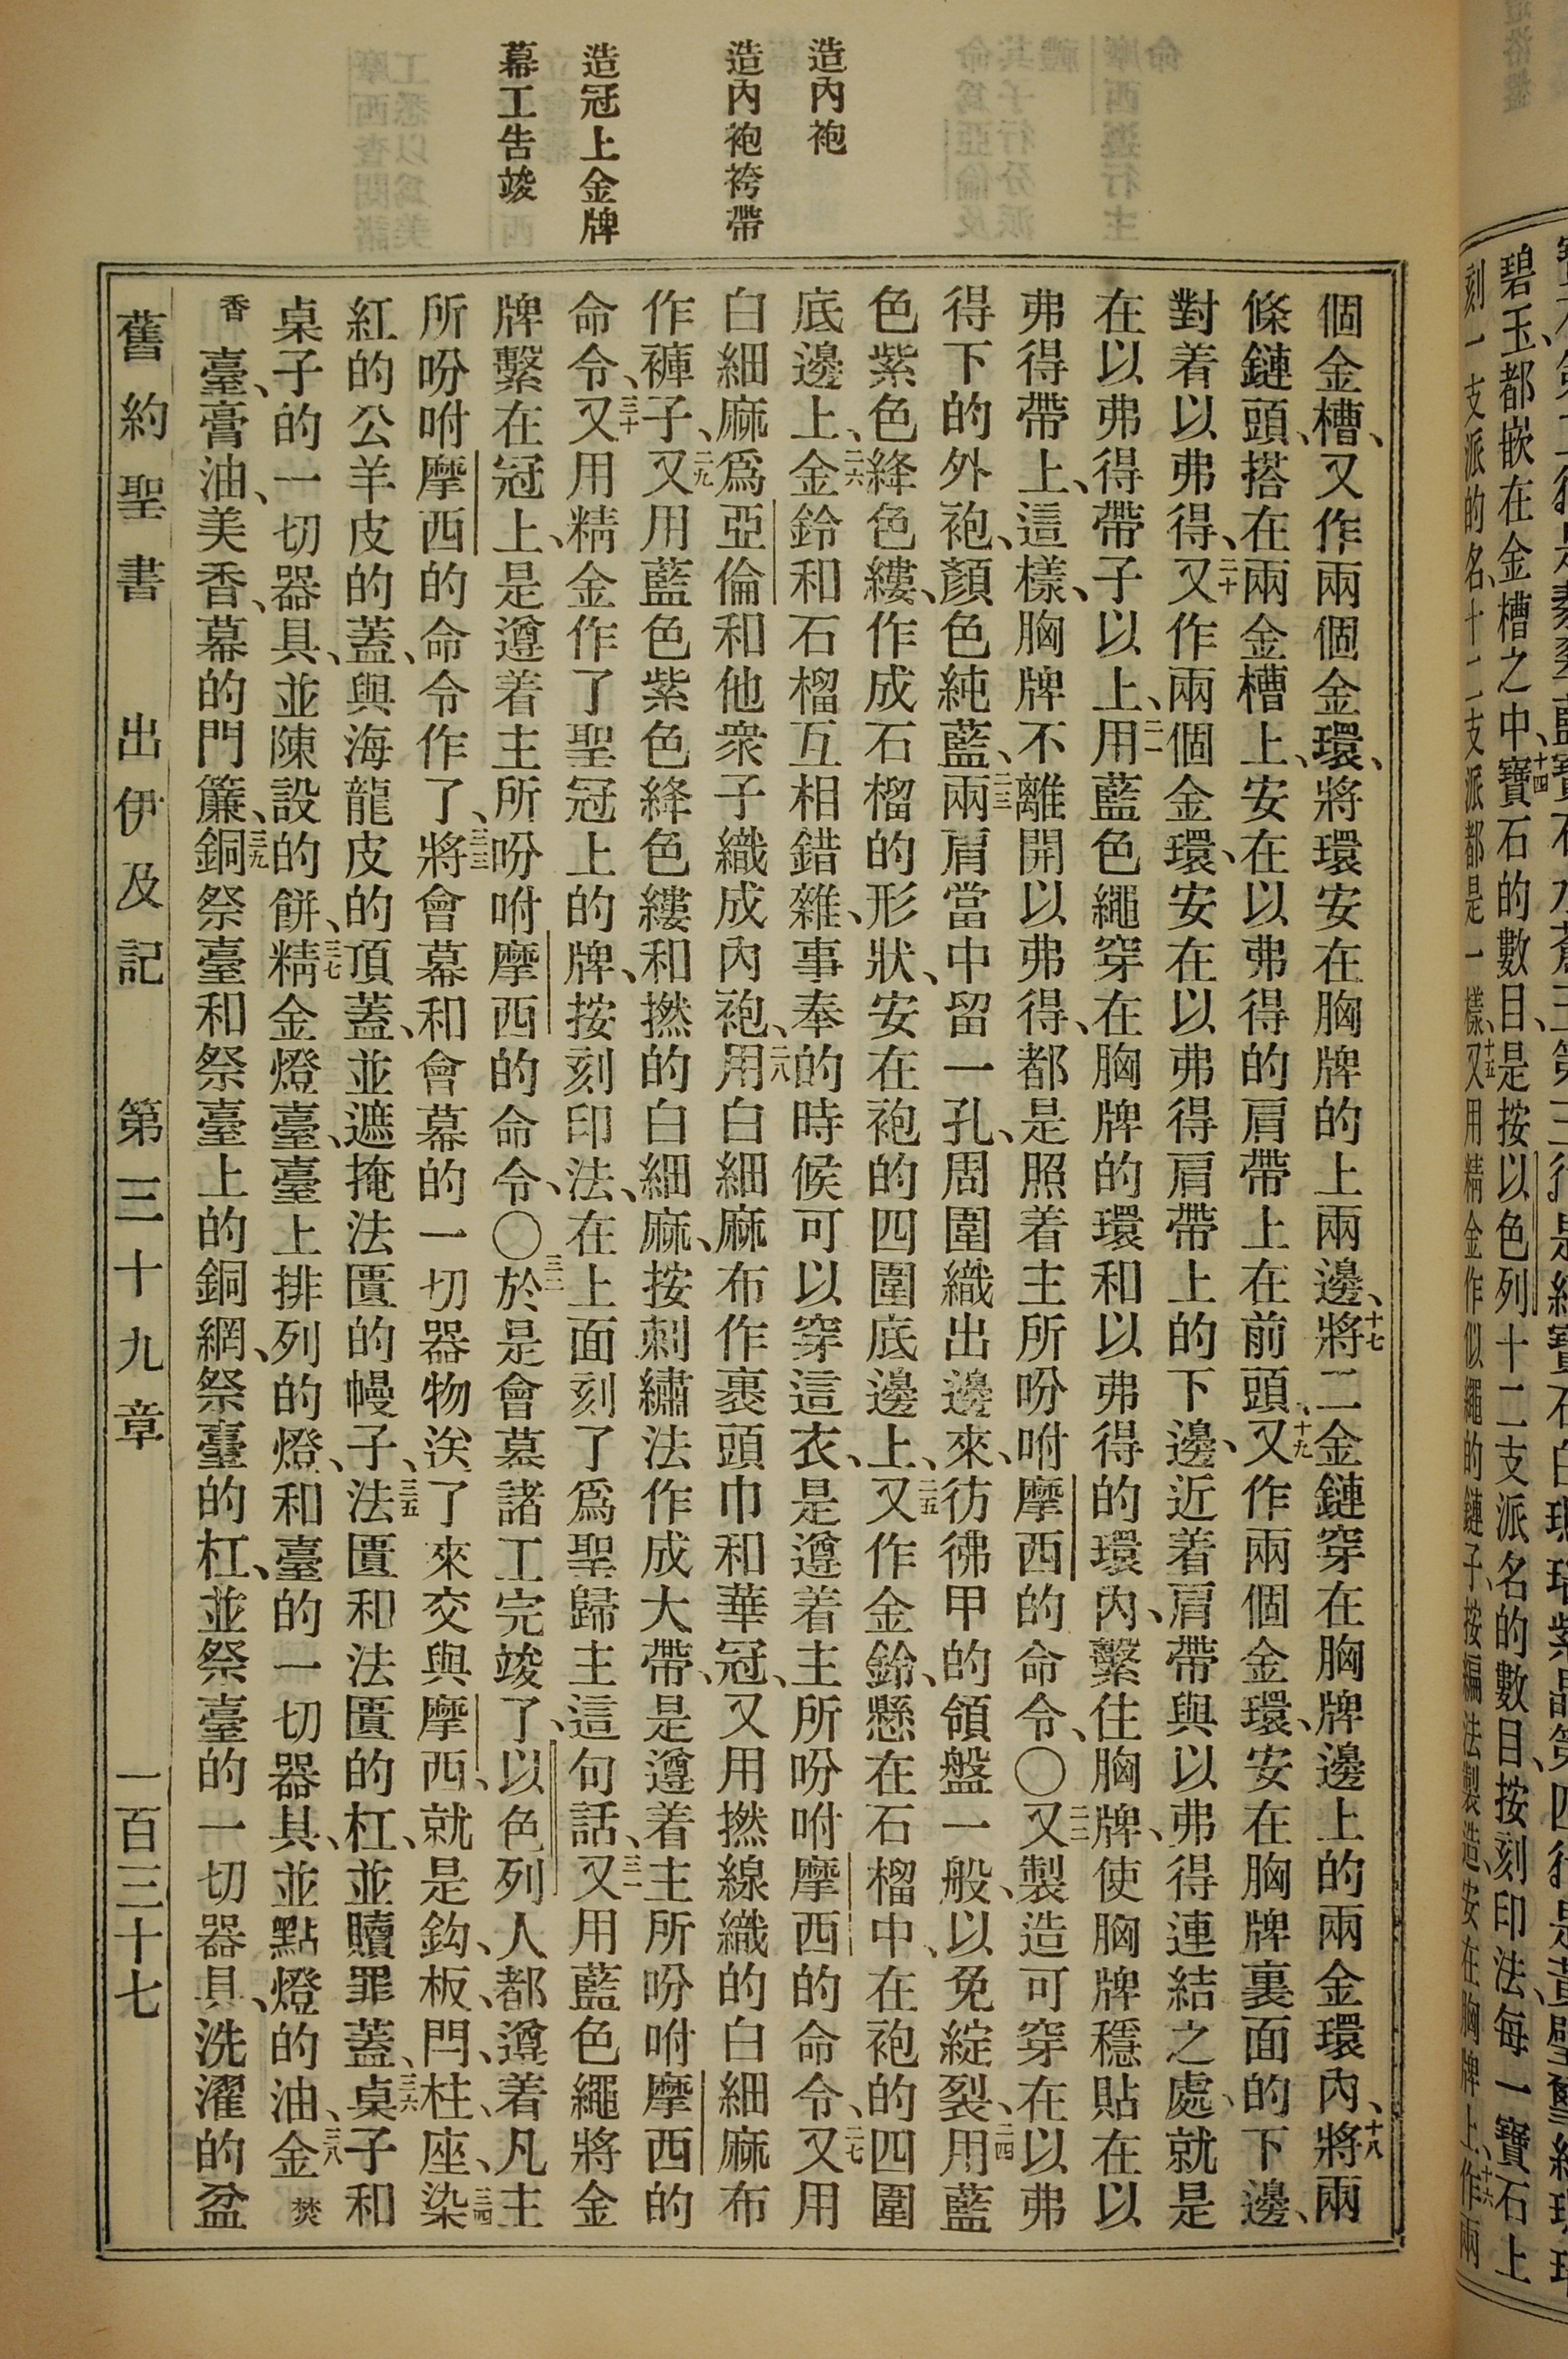 造內袍
造內袍袴帶
造冠上金牌
幕工告竣
個金槽、又作兩個金環、將環安在胸牌的上兩邊、十七將二金鏈穿在胸牌邊上的兩金環內、十八將兩
條鏈頭、搭在兩金槽上、安在以弗得的肩帶上在前頭、十九又作兩個金環、安在胸牌裏面的下邊、
對着以弗得、二十又作兩個金環、安在以弗得肩帶上的下邊、近着肩帶與以弗得連結之處、就是
在以弗得帶子以上、二一用藍色繩穿在胸牌的環和以弗得的環內、繫住胸牌、使胸牌穩貼在以
弗得帶上、這樣、胸牌不離開以弗得、都是照着主所吩咐摩西的命令、〇二二又製造可穿在以弗
得下的外袍、顏色純藍、二三兩肩當中留一孔、周圍織出邊來、彷彿甲的領盤一般、以免綻裂、二四用藍
色紫色絳色縷、作成石榴的形狀、安在袍的四圍底邊上、二五又作金鈴、懸在石榴中、在袍的四圍
底邊上、二六金鈴和石榴互相錯雜、事奉的時候可以穿這衣、是遵着主所吩咐摩西的命令、二七又用
白細麻爲亞倫和他衆子織成內袍、二八用白細麻布作裹頭巾和華冠、又用撚線織的白細麻布
作褲子、二九又用藍色紫色絳色縷和撚的白細麻、按刺繡法作成大帶、是遵着主所吩咐摩西的
命令、三十又用精金作了聖冠上的牌、按刻印法、在上面刻了爲聖歸主這句話、三一又用藍色繩將金
牌繫在冠上、是遵着主所吩咐摩西的命令、〇三二於是會幕諸工完竣了、以色列人都遵着凡主
所吩咐摩西的命令作了、三三將會幕和會幕的一切器物、送了來交與摩西、就是鈎、板、閂、柱、座、三四染
紅的公羊皮的蓋、與海龍皮的頂蓋、並遮掩法匱的幔子、三五法匱和法匱的杠、並贖罪蓋、三六桌子和
桌子的一切器具、並陳設的餅、三七精金燈臺、臺上排列的燈、和臺的一切器具、並點燈的油、三八金焚
香臺、膏油、美香、幕的門簾、三九銅祭臺和祭臺上的銅網、祭臺的杠、並祭臺的一切器具、洗濯的盆
舊約聖書 出伊及記 第三十九章 一百三十七
碧玉、都嵌在金槽之中、十四寶石的數目、是按以色列十二支派名的數目、按刻印法、每一寶石上
刻一支派的名、十二支派都是一樣、十五又用精金作似繩的鏈子、按編法製造、安在胸牌上、十六作兩